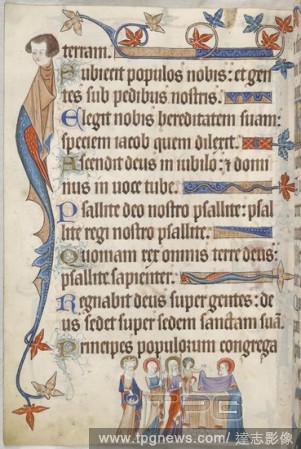 terram.
Subiecit populos nobis: et gen
tes sub pedibus nostris.
Elegit nobis hereditatem suam:
speciem iacob quem dilexit.
Ascendit deus in iubilo: ⁊ domi
nus in uoce tube.
Psallite deo nostro psallite: psal
lite regi nostro psallite.
Quoniam rex omnis terre deus:
psallite sapienter.
Regnabit deus super gentes: de
us sedet super sedem sanctam suā.
Principes populorum congrega
TPG
www.tpgnews.com/ 達志影像